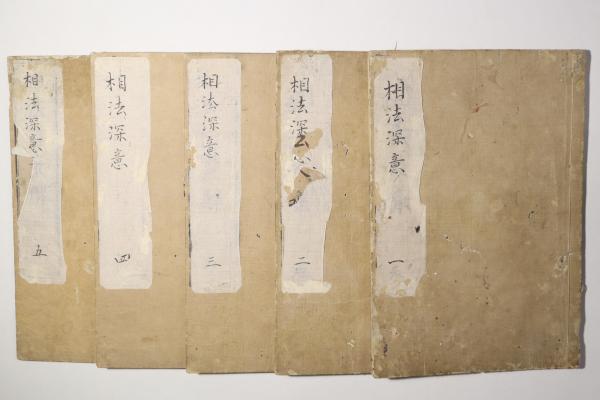 相法深意
一
相法深意
二
相法深意
三
相法深意
四
相法深意
五